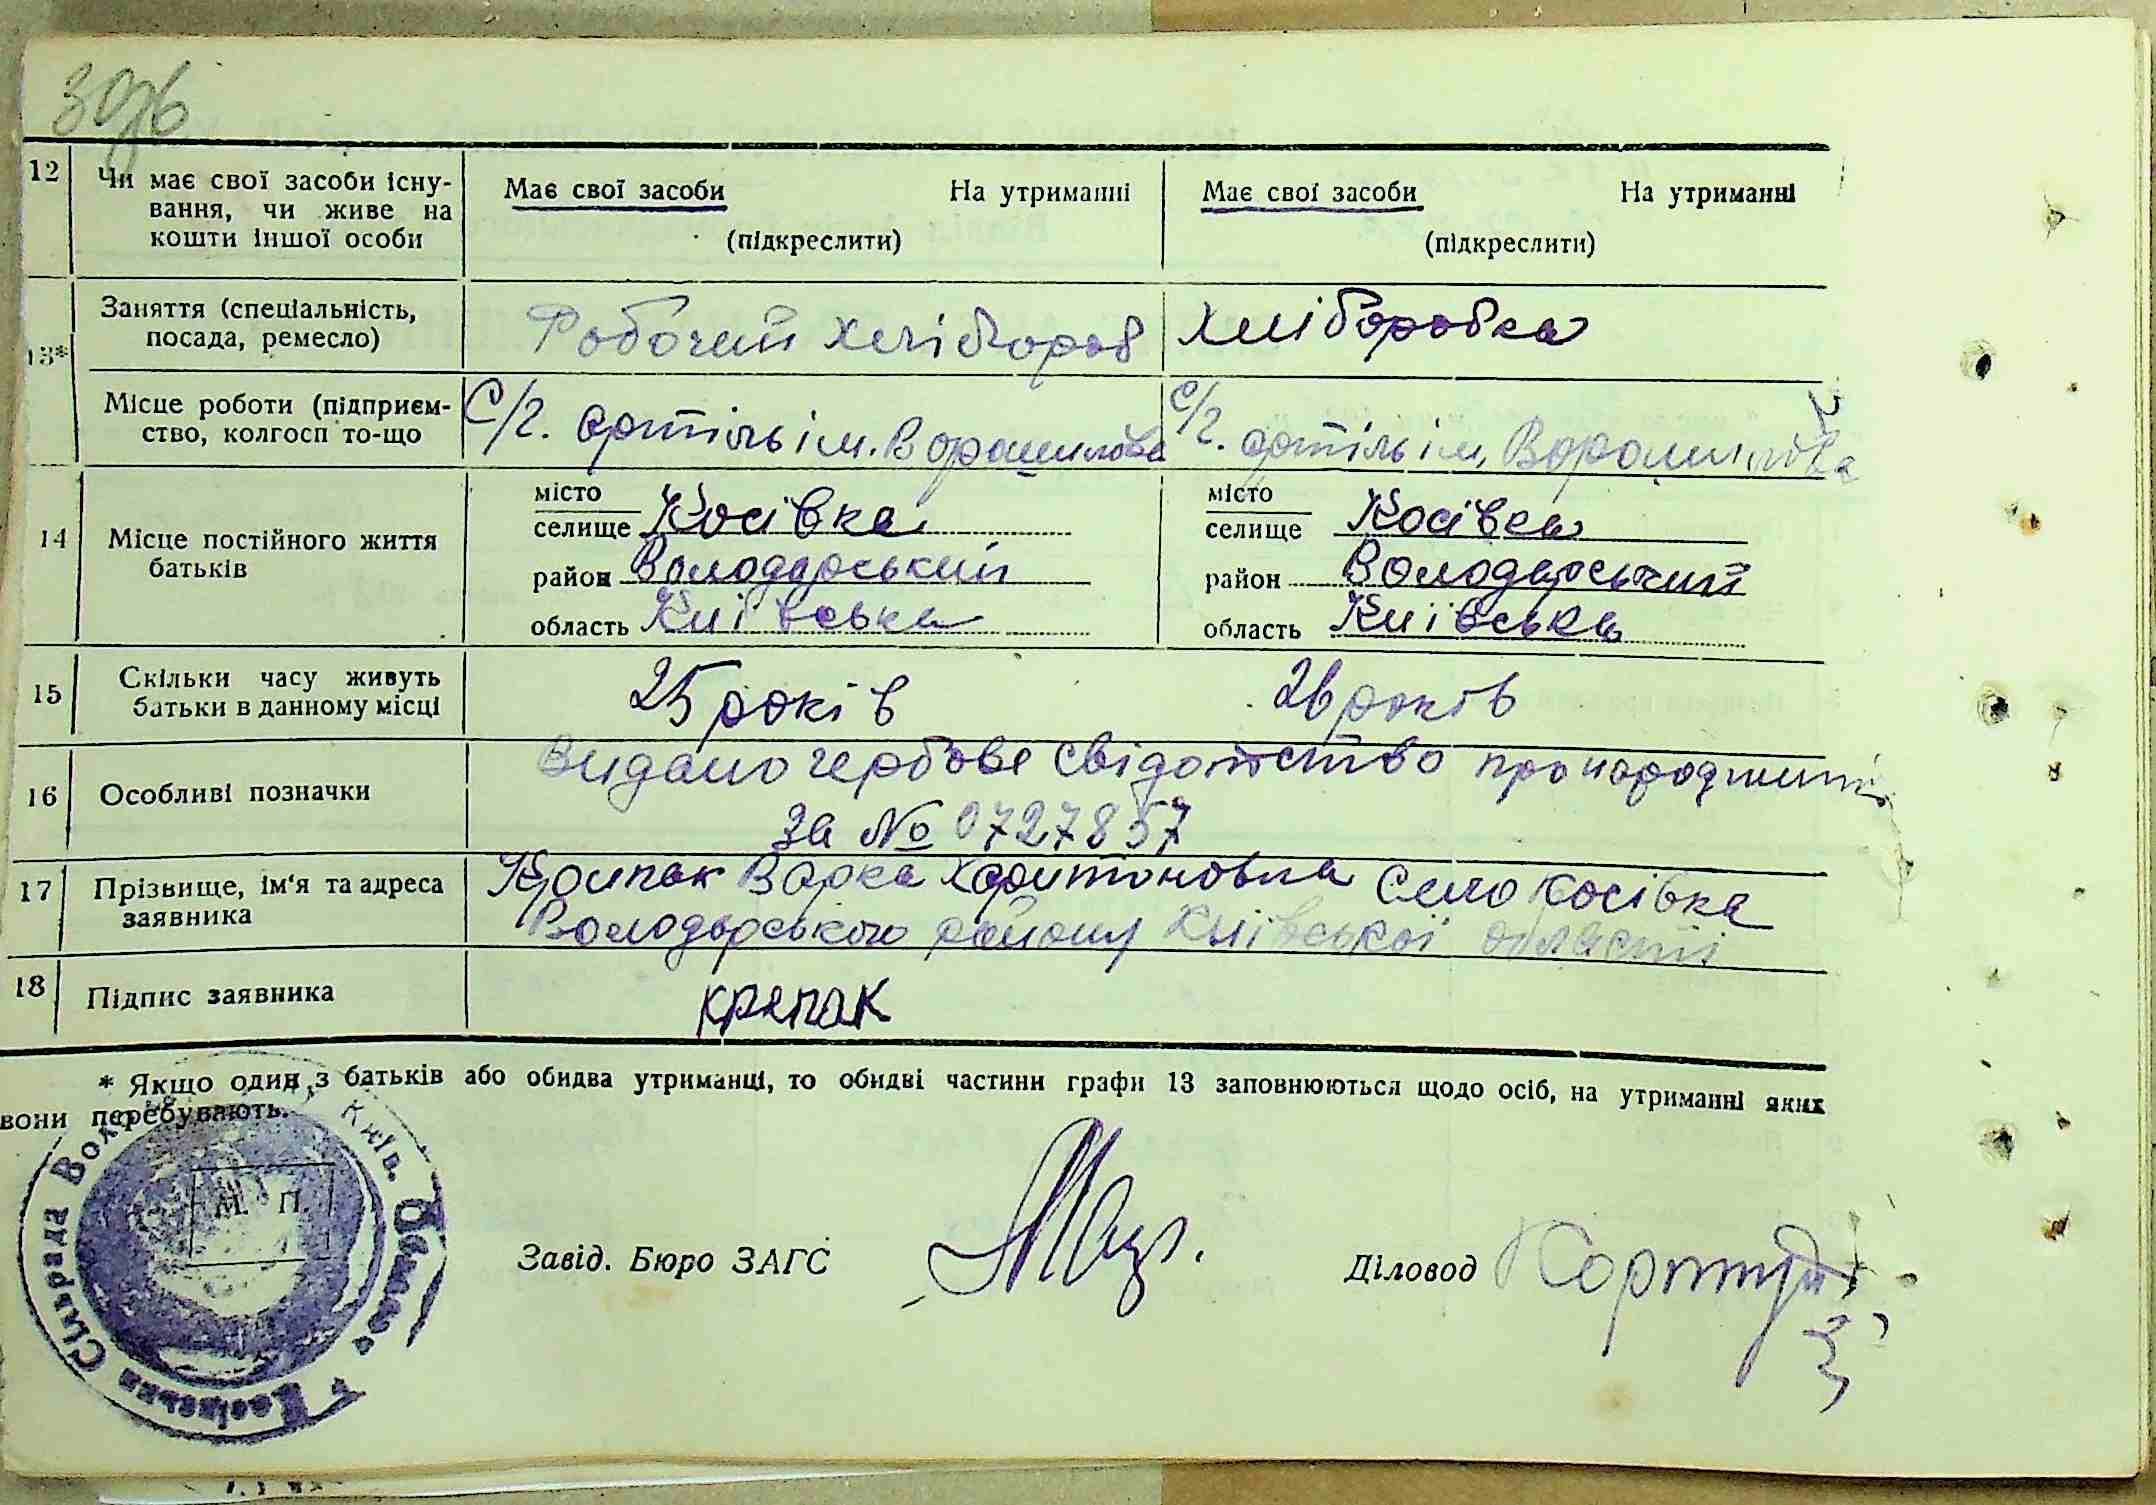 30зв
12 Чи має свої засоби існу-
вання, чи живе на
кошти іншої особи
Має свої засоби На утриманні
(підкреслити)
Має свої засоби На утриманні
(підкреслити)
13*
Заняття (спеціальність,
посада, ремесло)
Робочий хлібороб
хліборобка
Місце роботи (підприєм-
ство, колгосп то-що
С/г. артіль ім. Ворошилова
с/г. артіль ім. Ворошилова
14 Місце постійного життя
батьків
місто
селище Косівка
район Володарський
область Київська
місто
селище Косівка
район Володарський
область Київська
15 Скільки часу живуть
батьки в данному місці
25 років
26 років
16 Особливі позначки
Видано гербове свідотство про народження
за № 0727857
17 Прізвище, ім'я та адреса
заявника
Крипак Варка Харитоновна Село Косівка
Володарського району Київської області
18 Підпис заявника
крепак
* Якщо один з батьків або обидва утриманці, то обидві частини графи 13 заповнюються щодо осіб, на утриманні яких
вони перебувають.
Косівська Сільрада Київ. Області
М. П.
Завід. Бюро ЗАГС
Діловод